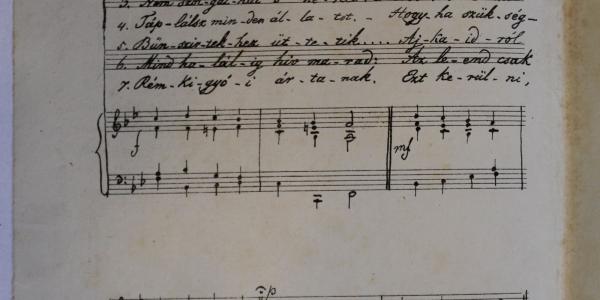 4. Táp-lálsz min-den ál-la-tot. - Hogy-ha szük-ség-
5. Bűn-szir-tek-hez üt-te-tik.... Aj-ka-id-ról
6. Mind ha-lál-ig hiv ma-rad: Az le-end csak
7. Rém-ki-gyó-i ár-ta-nak. Ezt ke-rül-ni,
f mf
p